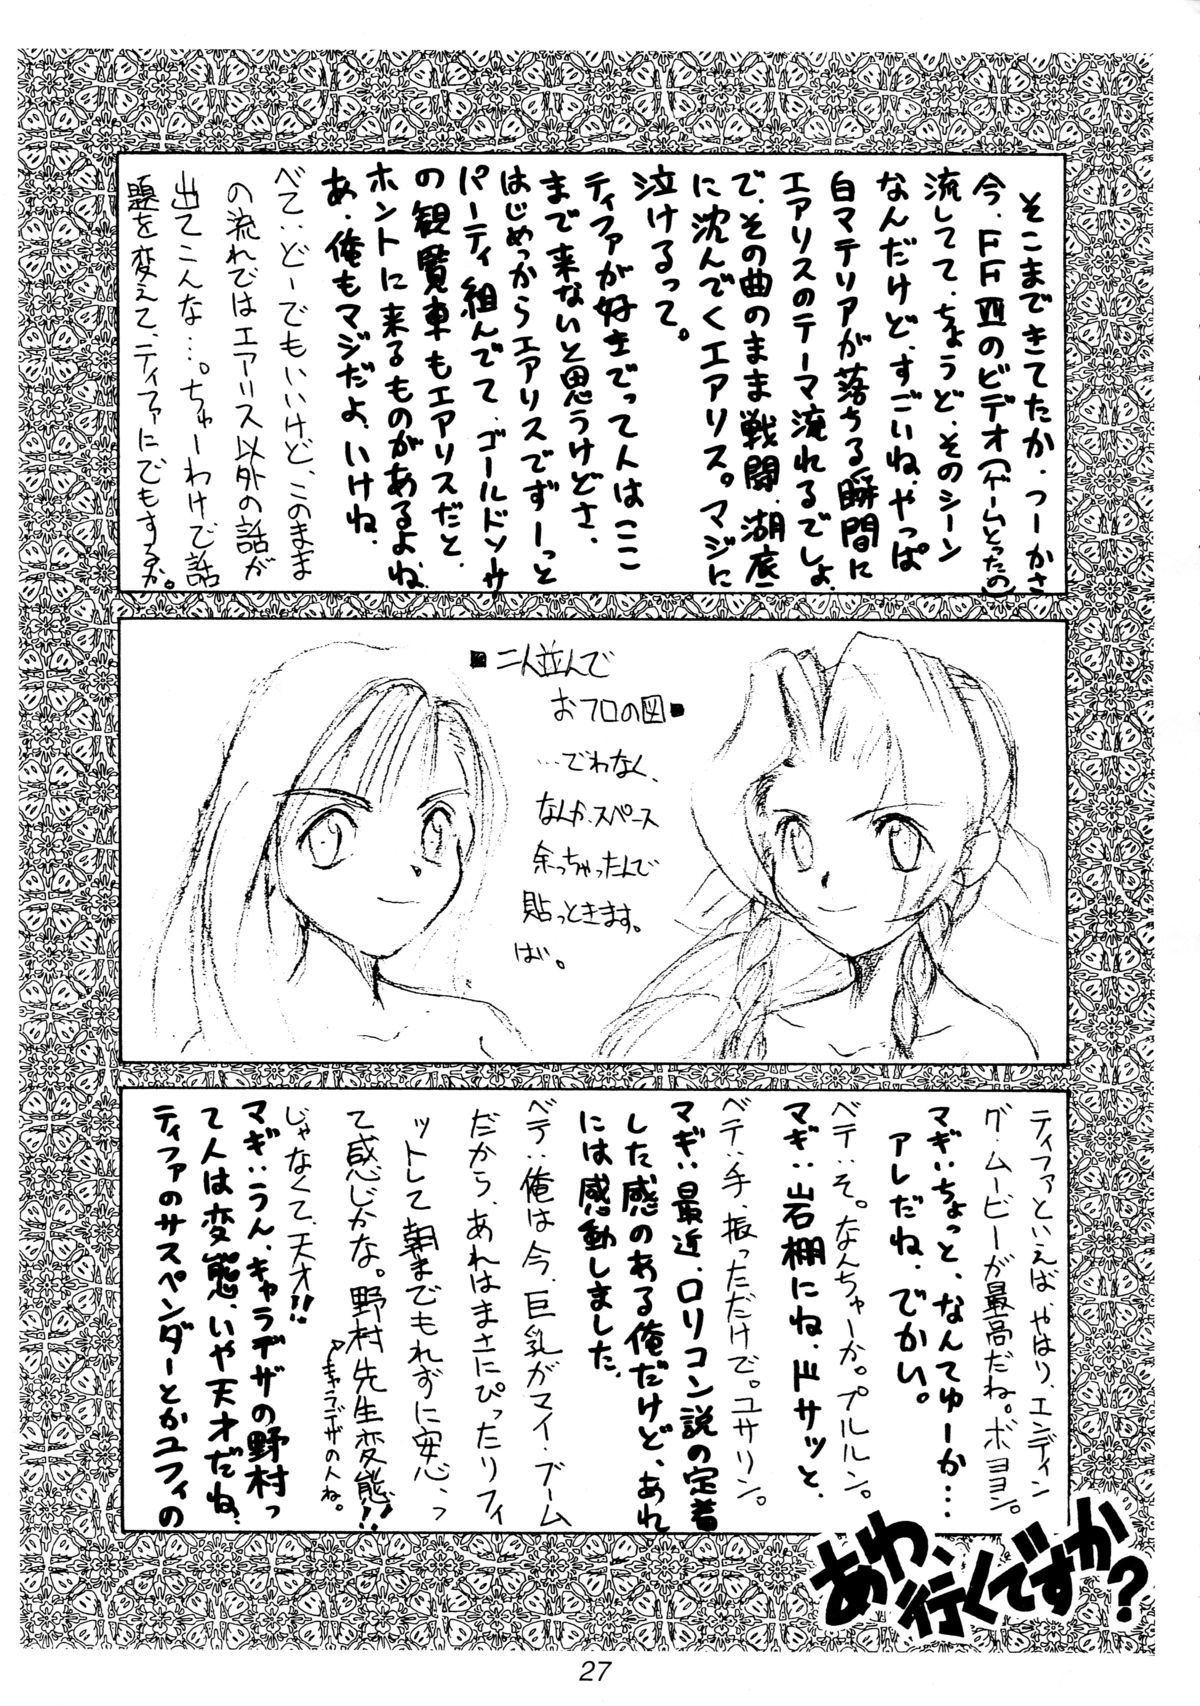 そこまできてたか、つーかさ
今、FFⅦのビデオ(ゲームとったの)
流してて、ちょうど、そのシーン
なんだけど、すごいね、やっぱ
白マテリアが落ちる瞬間に
エアリスのテーマ流れるでしょ、
で、その曲のまま戦闘、湖底
に沈んでくエアリス。マジに
泣けるって。
ティファが好きでって人はここ
まで来ないと思うけどさ、
はじめっからエアリスでずーっと
パーティ組んでて、ゴールドソーサ
の観覧車もエアリスだと
ホントに来るものがあるよね、
あ、俺もマジだよ、いけね、
べて:どーでもいいけど、このまま
の流れではエアリス以外の話が
出てこんな…。ちゅーわけで話
題を変えて、ティファにでもするか。
■二人並んで
おフロの図■
…でわなく、
なんか、スペース
余っちゃったんで
貼っときます。
ばい。
ティファといえばやはり、エンディン
グ・ムービーが最高だね。ボヨヨン。
マギ:ちょっと、なんてゆーか…
アレだね、でかい。
ベテ:そ。なんちゅーか。プルルン。
マギ:岩棚にね、ドサッと、
ベテ:手、振っただけで。ユサリン。
マギ:最近、ロリコン説の定着
した感のある俺だけど、あれ
には感動しました。
ベテ:俺は今、巨乳がマイ・ブーム
だから、あれはまさにぴったりフィ
ットして朝までもれずに安心、っ
て感じかな。野村先生変態!!
キャラデザの人ね。
じゃなくて、天才!!
マギ:うん、キャラデザの野村っ
て人は変態、いや天才だね、
ティファのサスペンダーとかユフィの
あわ、行くですか?
27